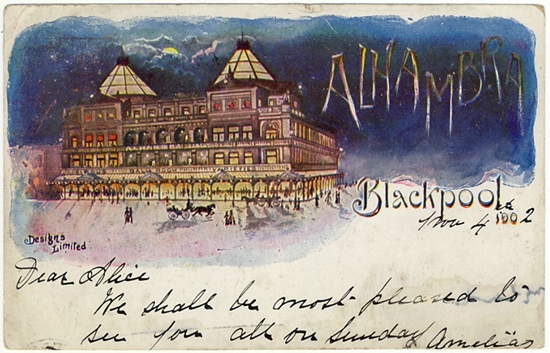 ALHAMBRA
Blackpool
Nov 4 1902
Designs
Limited
Dear Alice
We shall be most pleased to
see you all on Sunday Amelia